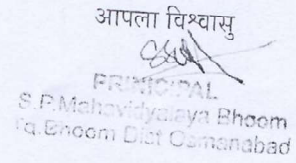 आपला विश्वासु
PRINCIPAL
S.P.Mahavidyalaya Bhoom
Tq.Bhoom Dist Osmanabad